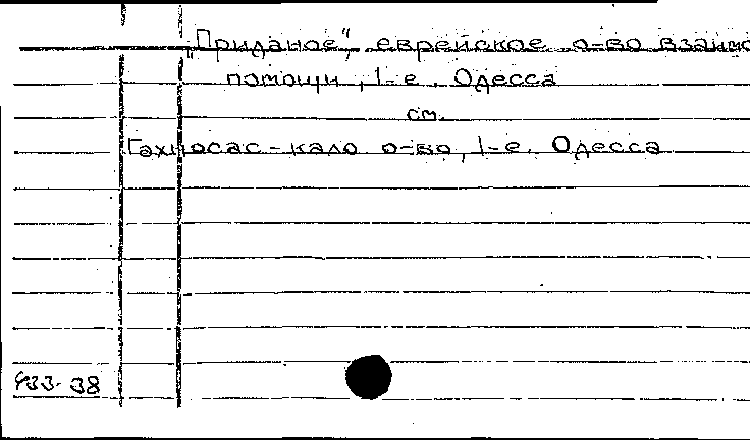 „Приданое", еврейское о-во взаимо
помощи, 1-е. Одесса
см.
Гахносас-кало о-во, 1-е. Одесса
433-38